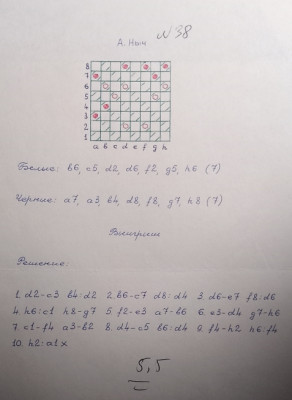 №38
А. Ныч
8
7
6
5
4
3
2
1
a b c d e f g h
Белые: b6, c5, d2, d6, f2, g5, h6 (7)
Черные: a7, a3, b4, d8, f8, g7, h8 (7)
Выигрыш
Решение:
1. d2-c3 b4:d2 2. b6-c7 d8:d4 3. d6-e7 f8:d6
4. h6:c1 h8-g7 5. f2-e3 a7-b6 6. e3-d4 g7-h6
7. c1-f4 a3-b2 8. d4-c5 b6:d4 9. f4-h2 h6:f4
10. h2:a1x
5,5